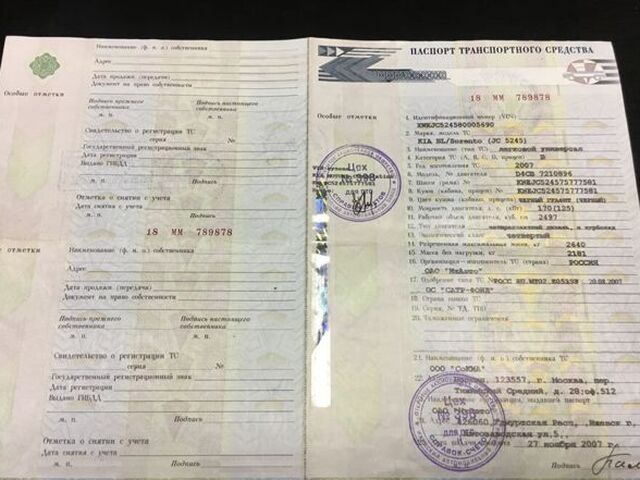 Наименование (ф. и. о.) собственника
Адрес
Дата продажи (передачи)
Документ на право собственности
Особые отметки
Подпись прежнего собственника
Подпись настоящего собственника
м. п.
м. п.
Свидетельство о регистрации ТС
серия
№
Государственный регистрационный знак
Дата регистрации
Выдано ГИБДД
м. п.
Подпись
Отметка о снятии с учета
Дата снятия с учета
м. п.
Подпись
18 ММ 789878
отметки
Наименование (ф. и. о.) собственника
Адрес
Дата продажи (передачи)
Документ на право собственности
Подпись прежнего собственника
Подпись настоящего собственника
м. п.
м. п.
Свидетельство о регистрации ТС
серия
№
Государственный регистрационный знак
Дата регистрации
Выдано ГИБДД
м. п.
Подпись
Отметка о снятии с учета
Дата снятия с учета
м. п.
Подпись
ПАСПОРТ ТРАНСПОРТНОГО СРЕДСТВА
18 ММ 789878
Особые отметки
Цех
№ 398
для ПТС
СПРАВОК-СЧЕТОВ
1. Идентификационный номер (VIN)
2. Марка, модель ТС
KIA BL/Sorento (JC 5245)
3. Наименование (тип ТС) легковой универсал
4. Категория ТС (А, В, С, D, прицеп) B
5. Год изготовления ТС 2007
6. Модель, № двигателя D4CB 7210896
7. Шасси (рама) №
8. Кузов (кабина, прицеп) №
9. Цвет кузова (кабины, прицепа)
10. Мощность двигателя, л. с. (кВт) 170(125)
11. Рабочий объем двигателя, куб. см 2497
12. Тип двигателя
13. Экологический класс четвертый
14. Разрешенная максимальная масса, кг 2640
15. Масса без нагрузки, кг 2181
16. Организация-изготовитель ТС (страна) РОССИЯ
ОАО "ИжАвто"
17. Одобрение типа ТС № 20.08.2007
ОС "САТР-ФОНД"
18. Страна вывоза ТС
19. Серия, № ТД, ТПО
20. Таможенные ограничения
21. Наименование (ф. и. о.) собственника ТС
22. Адрес Москва, 123557, г. Москва, пер.
Тишинский Средний, д. 28; оф.512
ОАО "ИжАвто"
426060, Удмуртская Респ, Ижевск г,
Автозаводская ул,5,
27 ноября 2007 г
м. п.
Подпись
Цех
№ 398
для ПТС
СПРАВОК-СЧЕТОВ